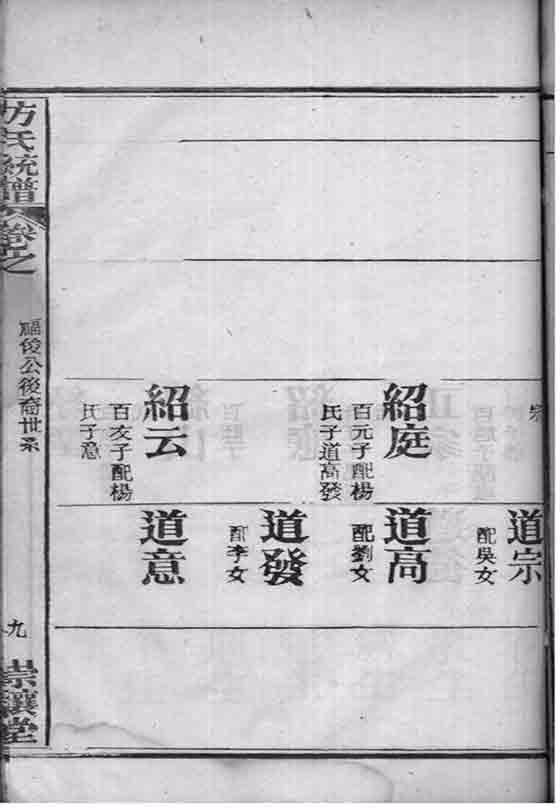 宗
紹庭
百元子配楊
氏子道高發
紹云
百友子配楊
氏子意
道宗
配吳女
道高
配劉女
道發
配李女
道意
方氏統譜
卷之
福俊公後裔世系
九
崇讓堂